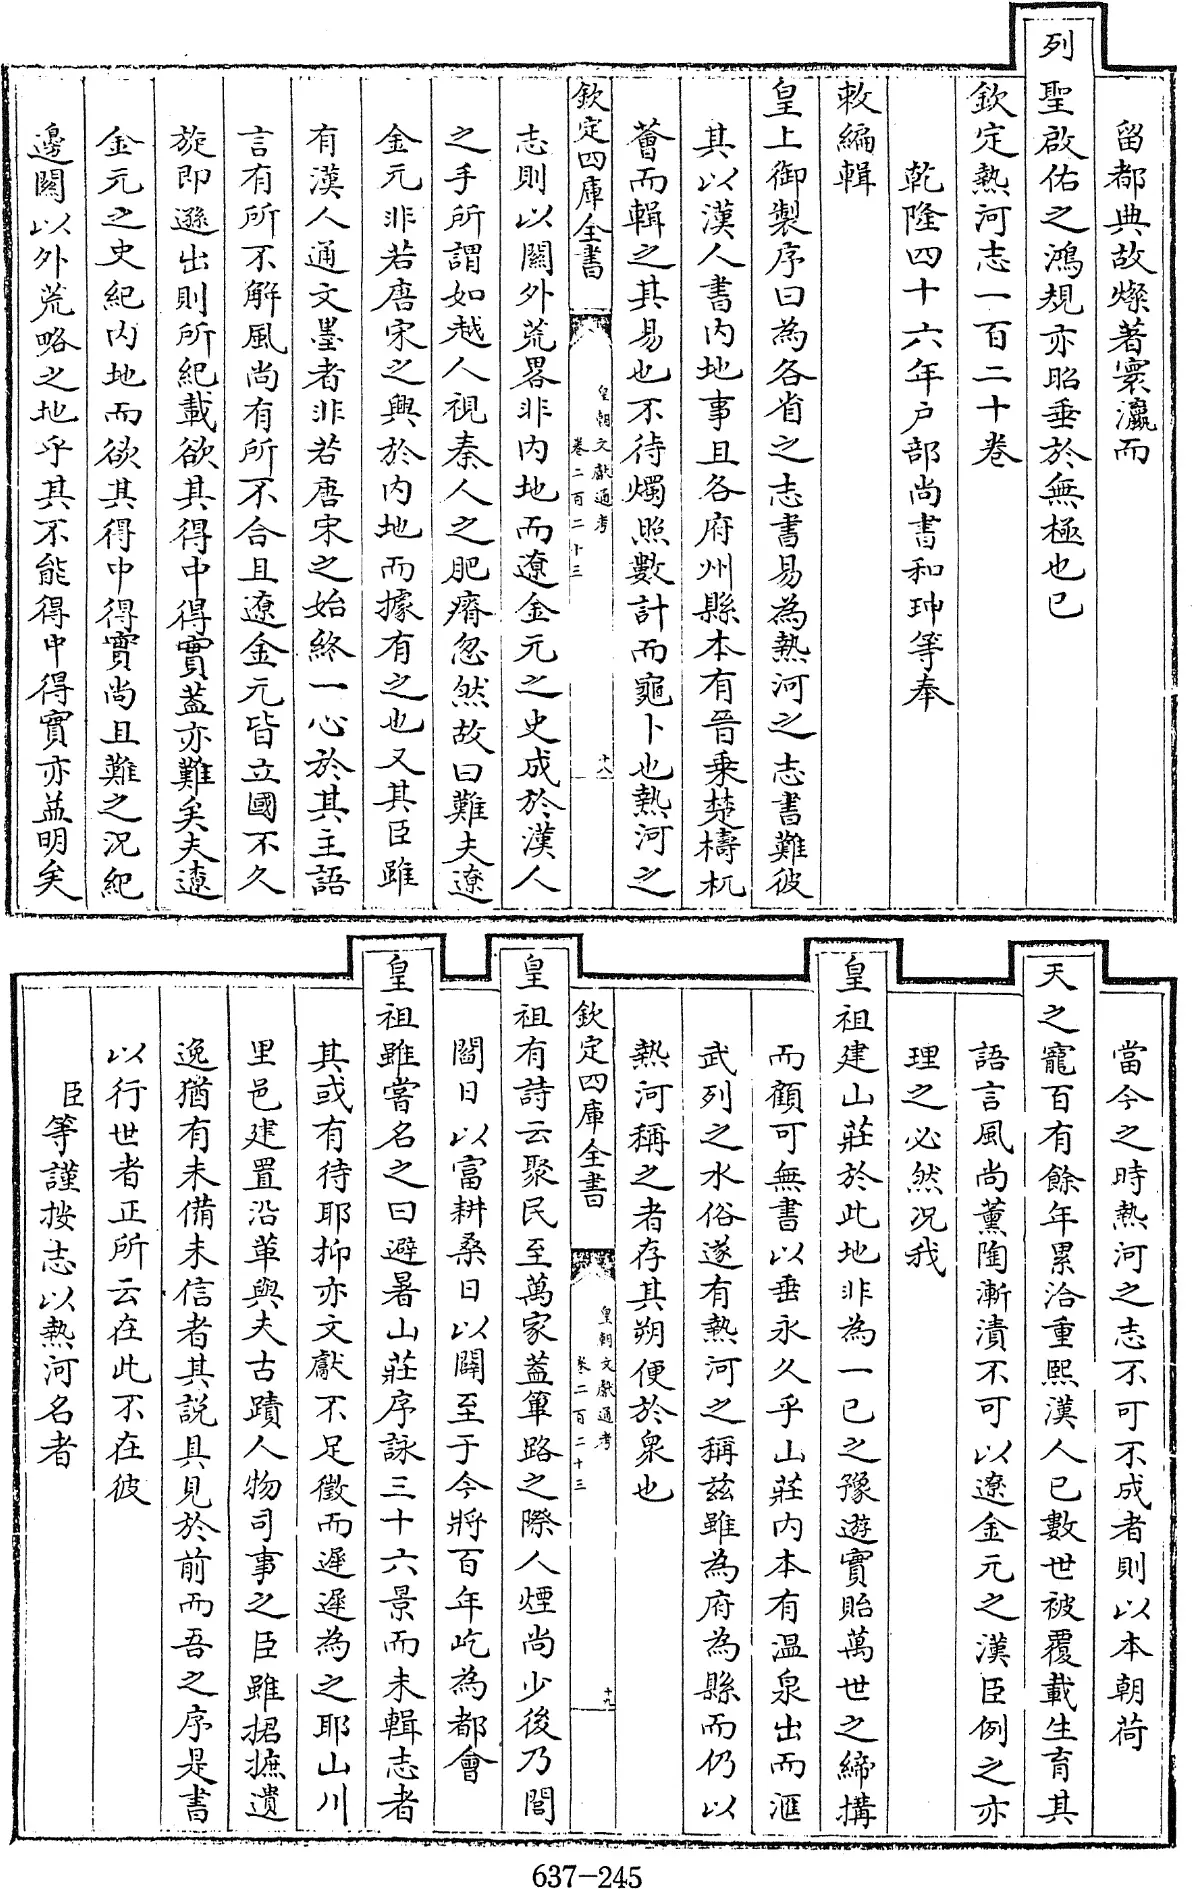 留都典故燦著寰瀛而
列聖啟佑之鴻規亦昭垂於無極也已
欽定熱河志一百二十卷
乾隆四十六年户部尚書和珅等奉
敕編輯
皇上御製序曰為各省之志書易為熱河之志書難彼
其以漢人書内地事且各府州縣本有晉乗楚檮杌
薈而輯之其易也不待燭照數計而龜卜也熱河之
欽定四庫全書
皇朝文獻通考
卷二百二十三
十八
志則以關外荒畧非内地而遼金元之史成於漢人
之手所謂如越人視秦人之肥瘠忽然故曰難夫遼
金元非若唐宋之興於内地而據有之也又其臣雖
有漢人通文墨者非若唐宋之始終一心於其主語
言有所不解風尚有所不合且遼金元皆立國不久
旋即遜出則所紀載欲其得中得實蓋亦難矣夫遼
金元之史紀内地而欲其得中得實尚且難之况紀
邊關以外荒略之地乎其不能得中得實亦益明矣
當今之時熱河之志不可不成者則以本朝荷
天之寵百有餘年累洽重熙漢人已數世被覆載生育其
語言風尚薰陶漸漬不可以遼金元之漢臣例之亦
理之必然况我
皇祖建山莊於此地非為一己之豫遊實貽萬世之締搆
而顧可無書以垂永久乎山莊内本有温泉出而滙
武列之水俗遂有熱河之稱兹雖為府為縣而仍以
熱河稱之者存其朔便於衆也
欽定四庫全書
皇朝文獻通考
卷二百二十三
十九
皇祖有詩云聚民至萬家蓋篳路之際人煙尚少後乃閭
閻日以富耕桑日以闢至于今將百年屹為都會
皇祖雖嘗名之曰避暑山莊序詠三十六景而未輯志者
其或有待耶抑亦文獻不足徵而遲遲為之耶山川
里邑建置沿革與夫古蹟人物司事之臣雖捃摭遺
逸猶有未備未信者其説具見於前而吾之序是書
以行世者正所云在此不在彼
臣等謹按志以熱河名者
637-245